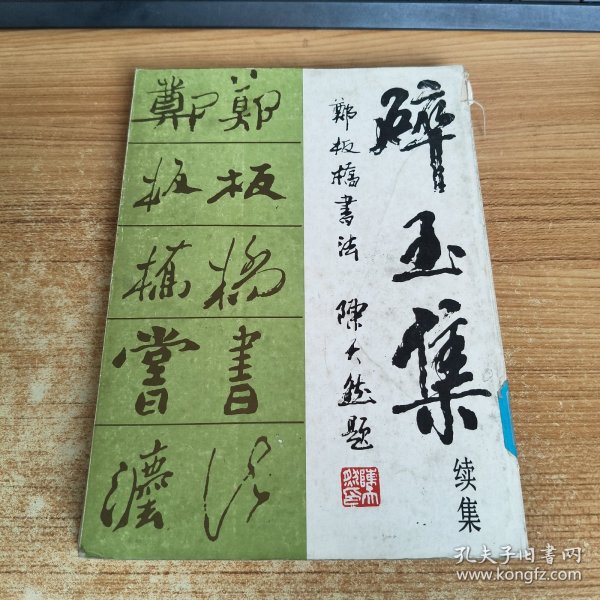 碎玉集
续集
鄭板橋書法 陳天然題
陳天然印
鄭板橋書法
鄭板橋書灋
孔夫子旧书网
www.kongfz.com